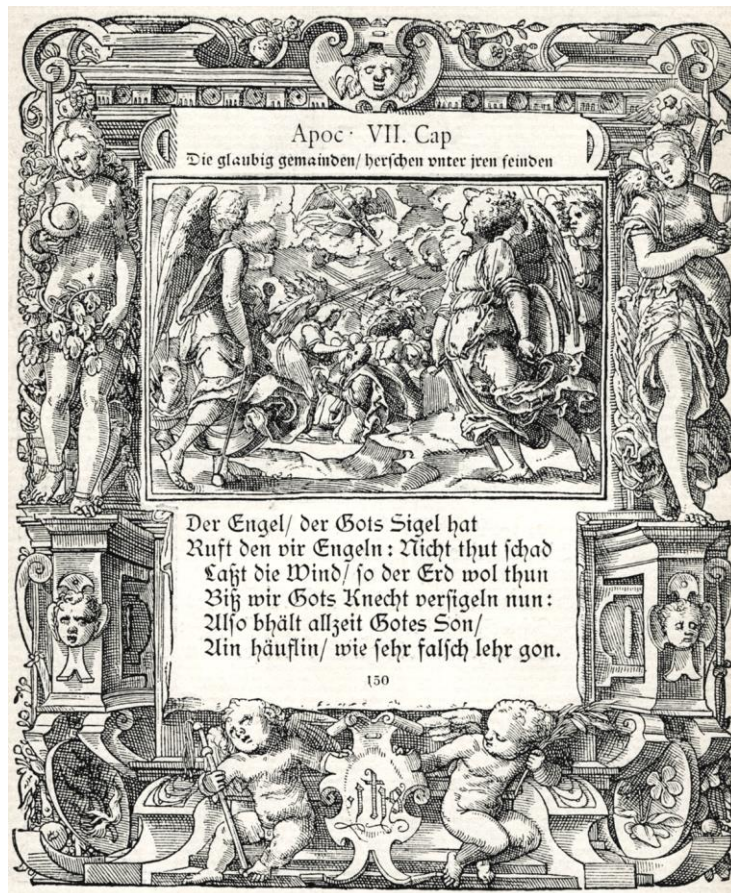 Apoc· VII. Cap
Die glaubig gemainden/ herschen vnter jren feinden
Der Engel/ der Gots Sigel hat
Ruft den vir Engeln: Nicht thut schad
Laßt die Wind/ so der Erd wol thun
Biß wir Gots Knecht versigeln nun:
Also bhält allzeit Gotes Son/
Ain häuflin/ wie sehr falsch lehr gon.
150
jhs